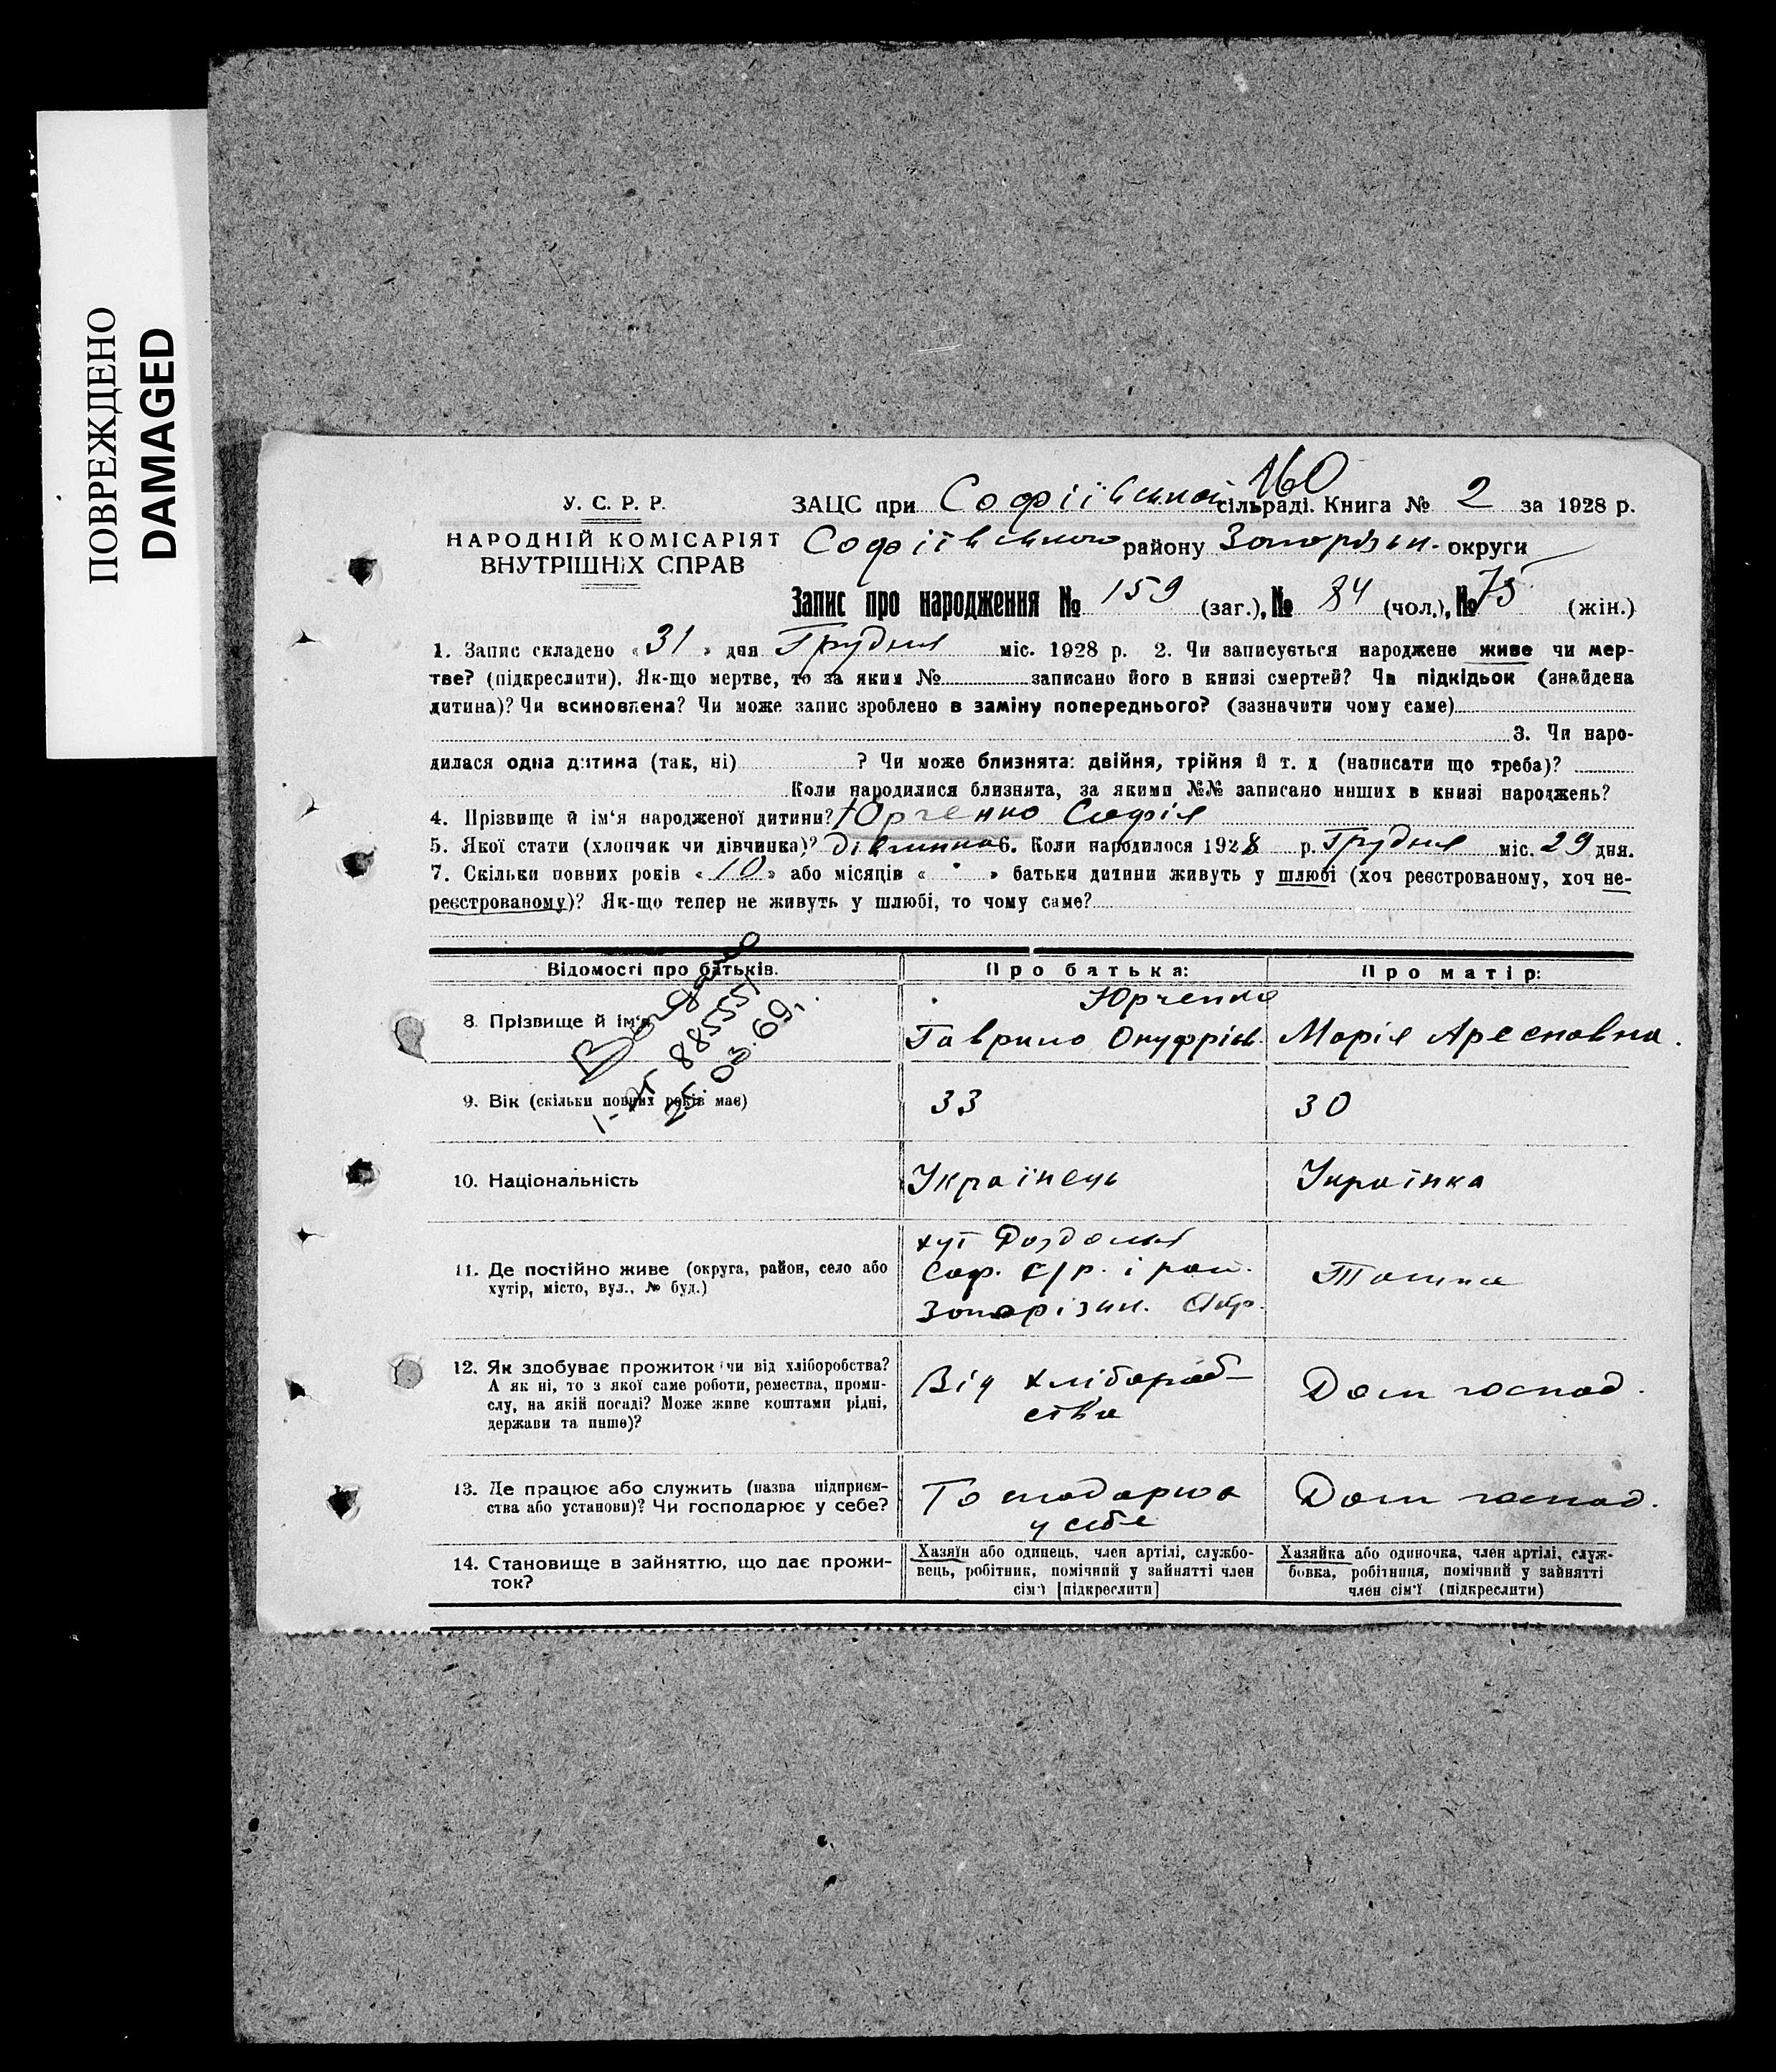 ПОВРЕЖДЕНО
DAMAGED
160
У. С. Р. Р.
НАРОДНІЙ КОМІСАРІЯТ
ВНУТРІШНІХ СПРАВ
ЗАЦС при Софіївській сільраді. Книга № 2 за 1928 р.
Софіївського району Запорізьк. округи
Запис про народження № 159 (заг.), № 84 (чол.), № 75 (жін.)
1. Запис складено «31» дня Грудня міс. 1928 р. 2. Чи записується народжене живе чи мер-
тве? (підкреслити). Як-що мертве, то за яким № записано його в книзі смертей? Чи підкідьок (знайдена
дитина)? Чи всиновлена? Чи може запис зроблено в заміну попереднього? (зазначити чому саме)
3. Чи наро-
дилася одна дитина (так, ні) ? Чи може близнята: двійня, трійня й т. д (написати що треба)?
Коли народилися близнята, за якими №№ записано инших в книзі народжень?
4. Прізвище й ім‘я народженої дитини? Юрченко Софія
5. Якої стати (хлопчик чи дівчинка)? дівчинка 6. Коли народилося 1928 р. Грудня міс. 29 дня.
7. Скільки повних років «10» або місяців « » батьки дитини живуть у шлюбі (хоч реєстрованому, хоч не-
реєстрованому)? Як-що тепер не живуть у шлюбі, то чому саме?
Відомості про батьків.
Про батька:
Про матір:
8. Прізвище й ім‘я
Юрченко
Гаврило Онуфрієв.
Марія Арсеновна.
1-ЯГ 885551
25.03.69г.
9. Вік (скільки повних років має)
33
30
10. Національність
Українець
Українка
11. Де постійно живе (округа, район, село або
хутір, місто, вул., № буд.)
хут Роздолья
Соф. с/р. і рай.
Запорізьк. Окр.
12. Як здобуває прожиток чи від хліборобства?
А як ні, то з якої саме роботи, ремества, проми-
слу, на якій посаді? Може живе коштами рідні,
держави та инше)?
Від хлібороб-
ства
Дом господ.
13. Де працює або служить (назва підприєм-
ства або установи)? Чи господарює у себе?
Господарює
у себе
Дом господ.
14. Становище в зайняттю, що дає прожи-
ток?
Хазяїн або одинець, член артілі, службо-
вець, робітник, помічний у зайнятті член
сім‘ї [підкреслити]
Хазяйка або одиночка, член артілі, служ-
бовка, робітниця, помічний у зайнятті
член сім‘ї (підкреслити)